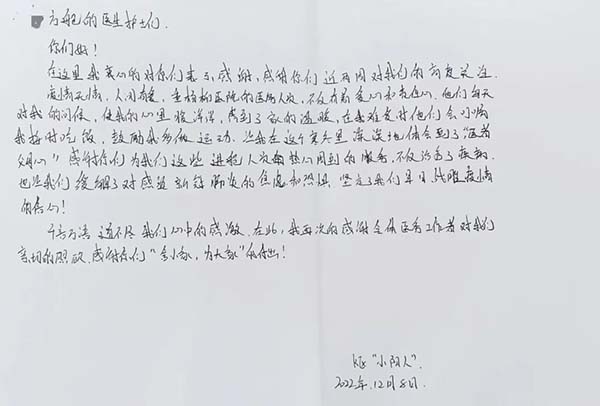 方舱的医生护士们.
你们好!
在这里我衷心的对你们表示感谢,感谢你们近两周对我们的高度关注.
病情无情,人间有爱,医院的医务人员,不仅有爱心和责任心.他们每天
对我的问候,使我的心里暖洋洋,感到了家的温暖,在我难受时他们会叮嘱
我按时吃饭,鼓励我多做运动.让我在这个寒冬里深深地体会到了“医者
仁心”感谢你们为我们这些进舱人员热心周到的服务,不仅治愈了疾病.
也让我们缓解了对感染新冠肺炎的焦虑和恐惧,坚定了我们早日战胜疫情
的信心!
千言万语道不尽我们心中的感激.在此,我再次的感谢全体医务工作者对我们
亲切的照顾.感谢你们“舍小家,为大家”的付出!
“小阳人”.
2022年.12月8日.